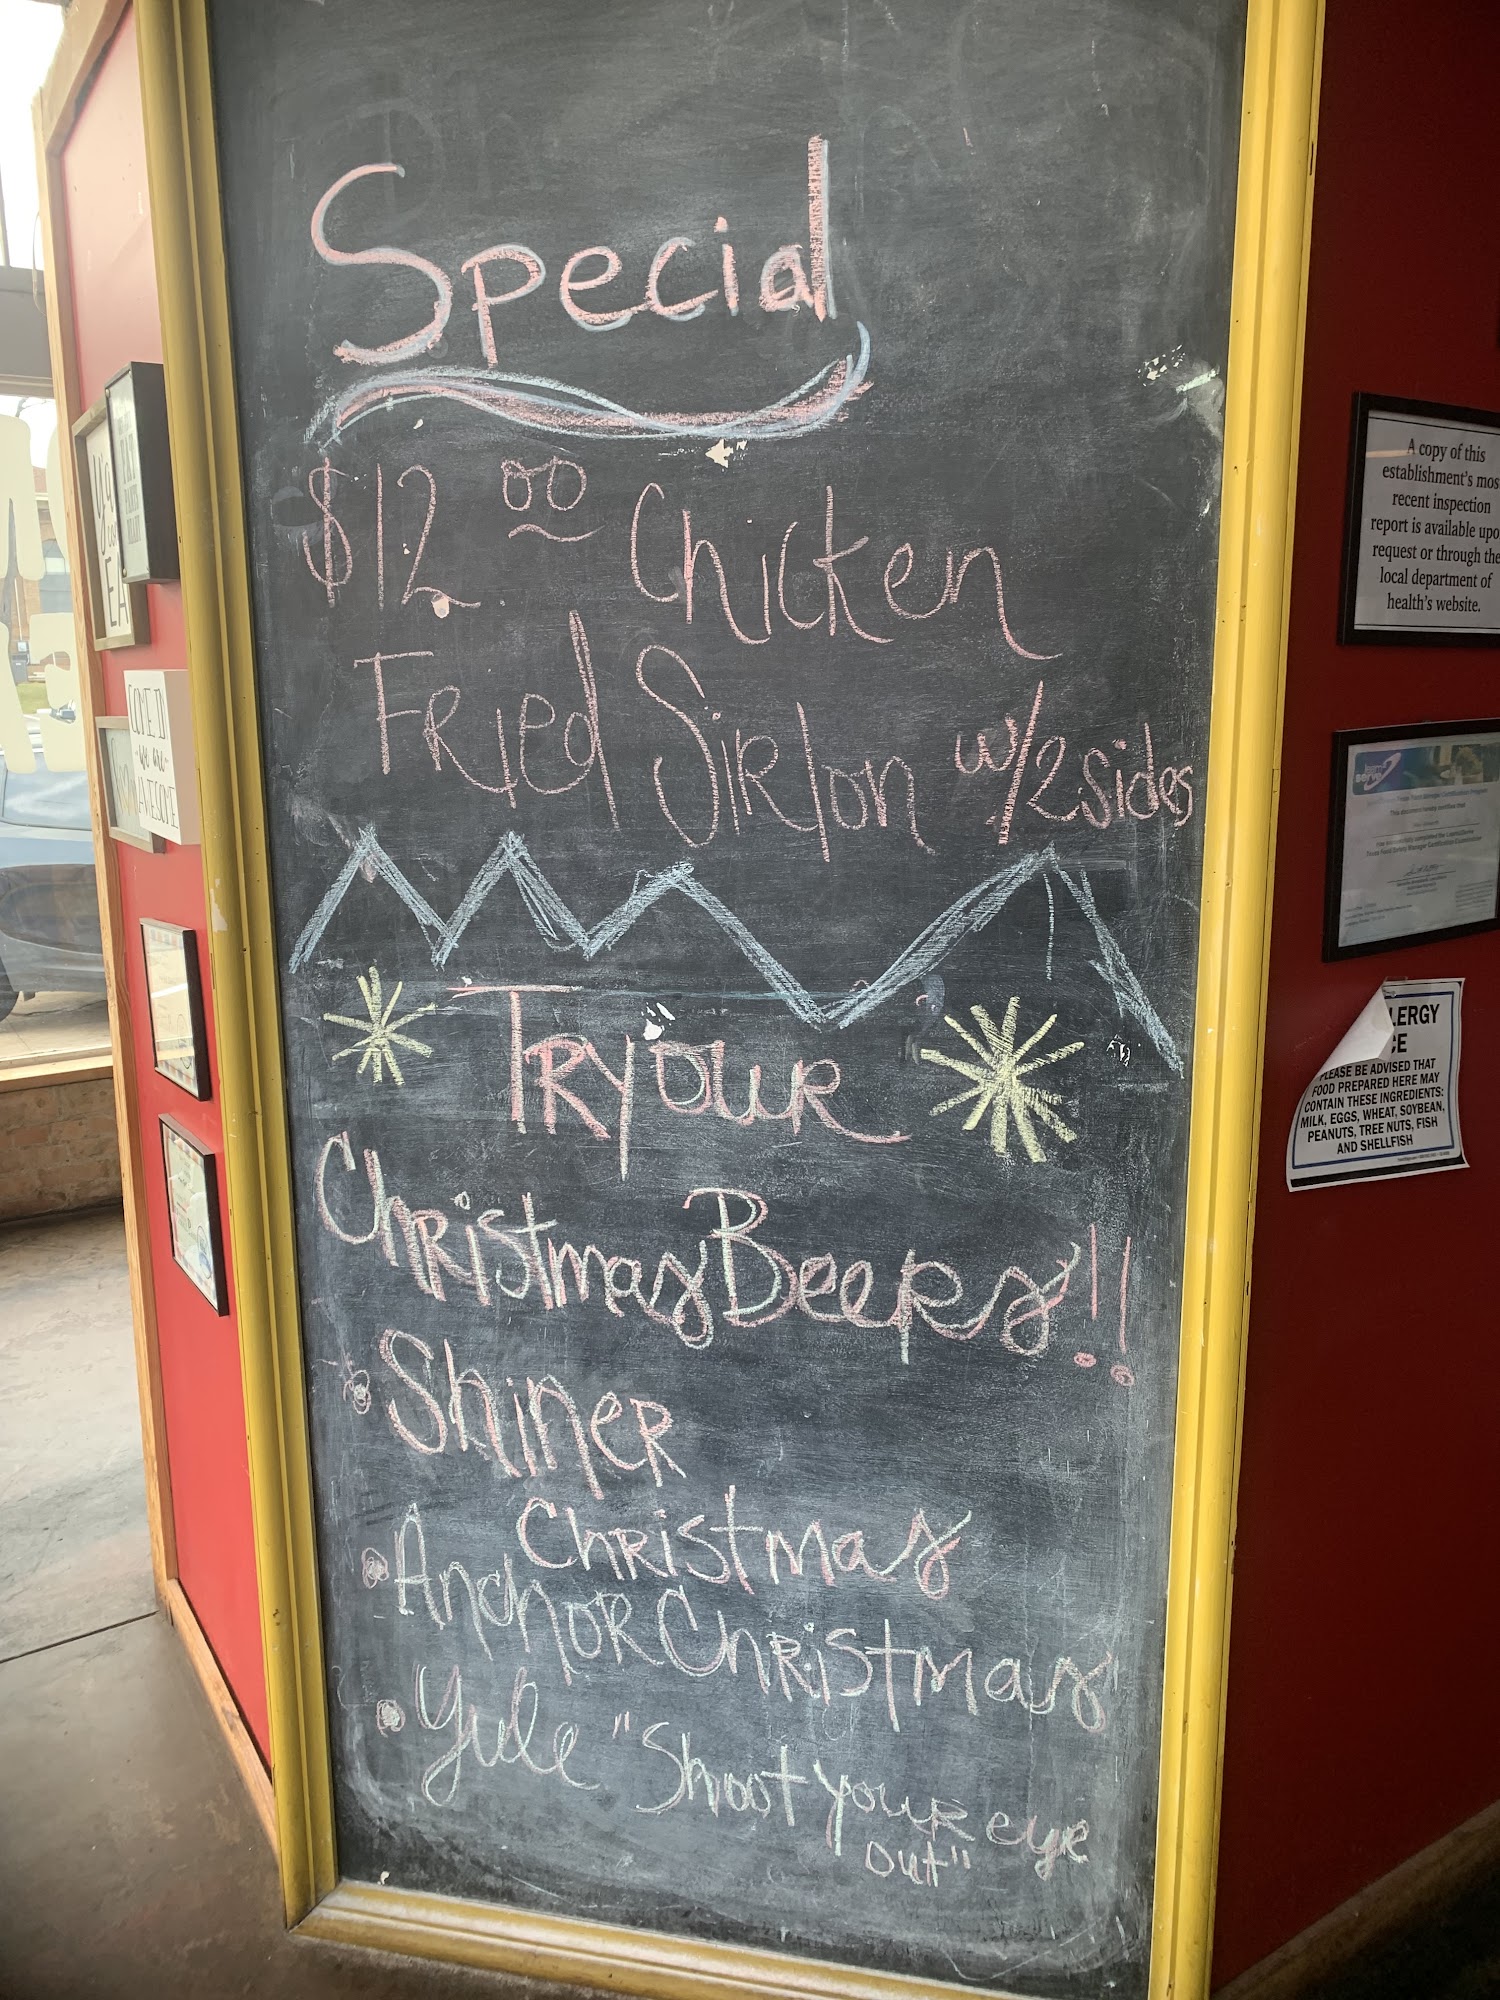 Special
$12.00 Chicken
Fried Sirlon w/2 sides
Try our
Christmas Beers!!
• Shiner
Christmas
• Anchor Christmas
• Yule "Shoot your eye
out"
A copy of this
establishment's mos
recent inspection
report is available upo
request or through the
local department of
health's website.
serve
This document hereby certifies that
LERGY
CE
PLEASE BE ADVISED THAT
FOOD PREPARED HERE MAY
CONTAIN THESE INGREDIENTS:
MILK, EGGS, WHEAT, SOYBEAN,
PEANUTS, TREE NUTS, FISH
AND SHELLFISH
EA
COME IN
we are
AWESOME